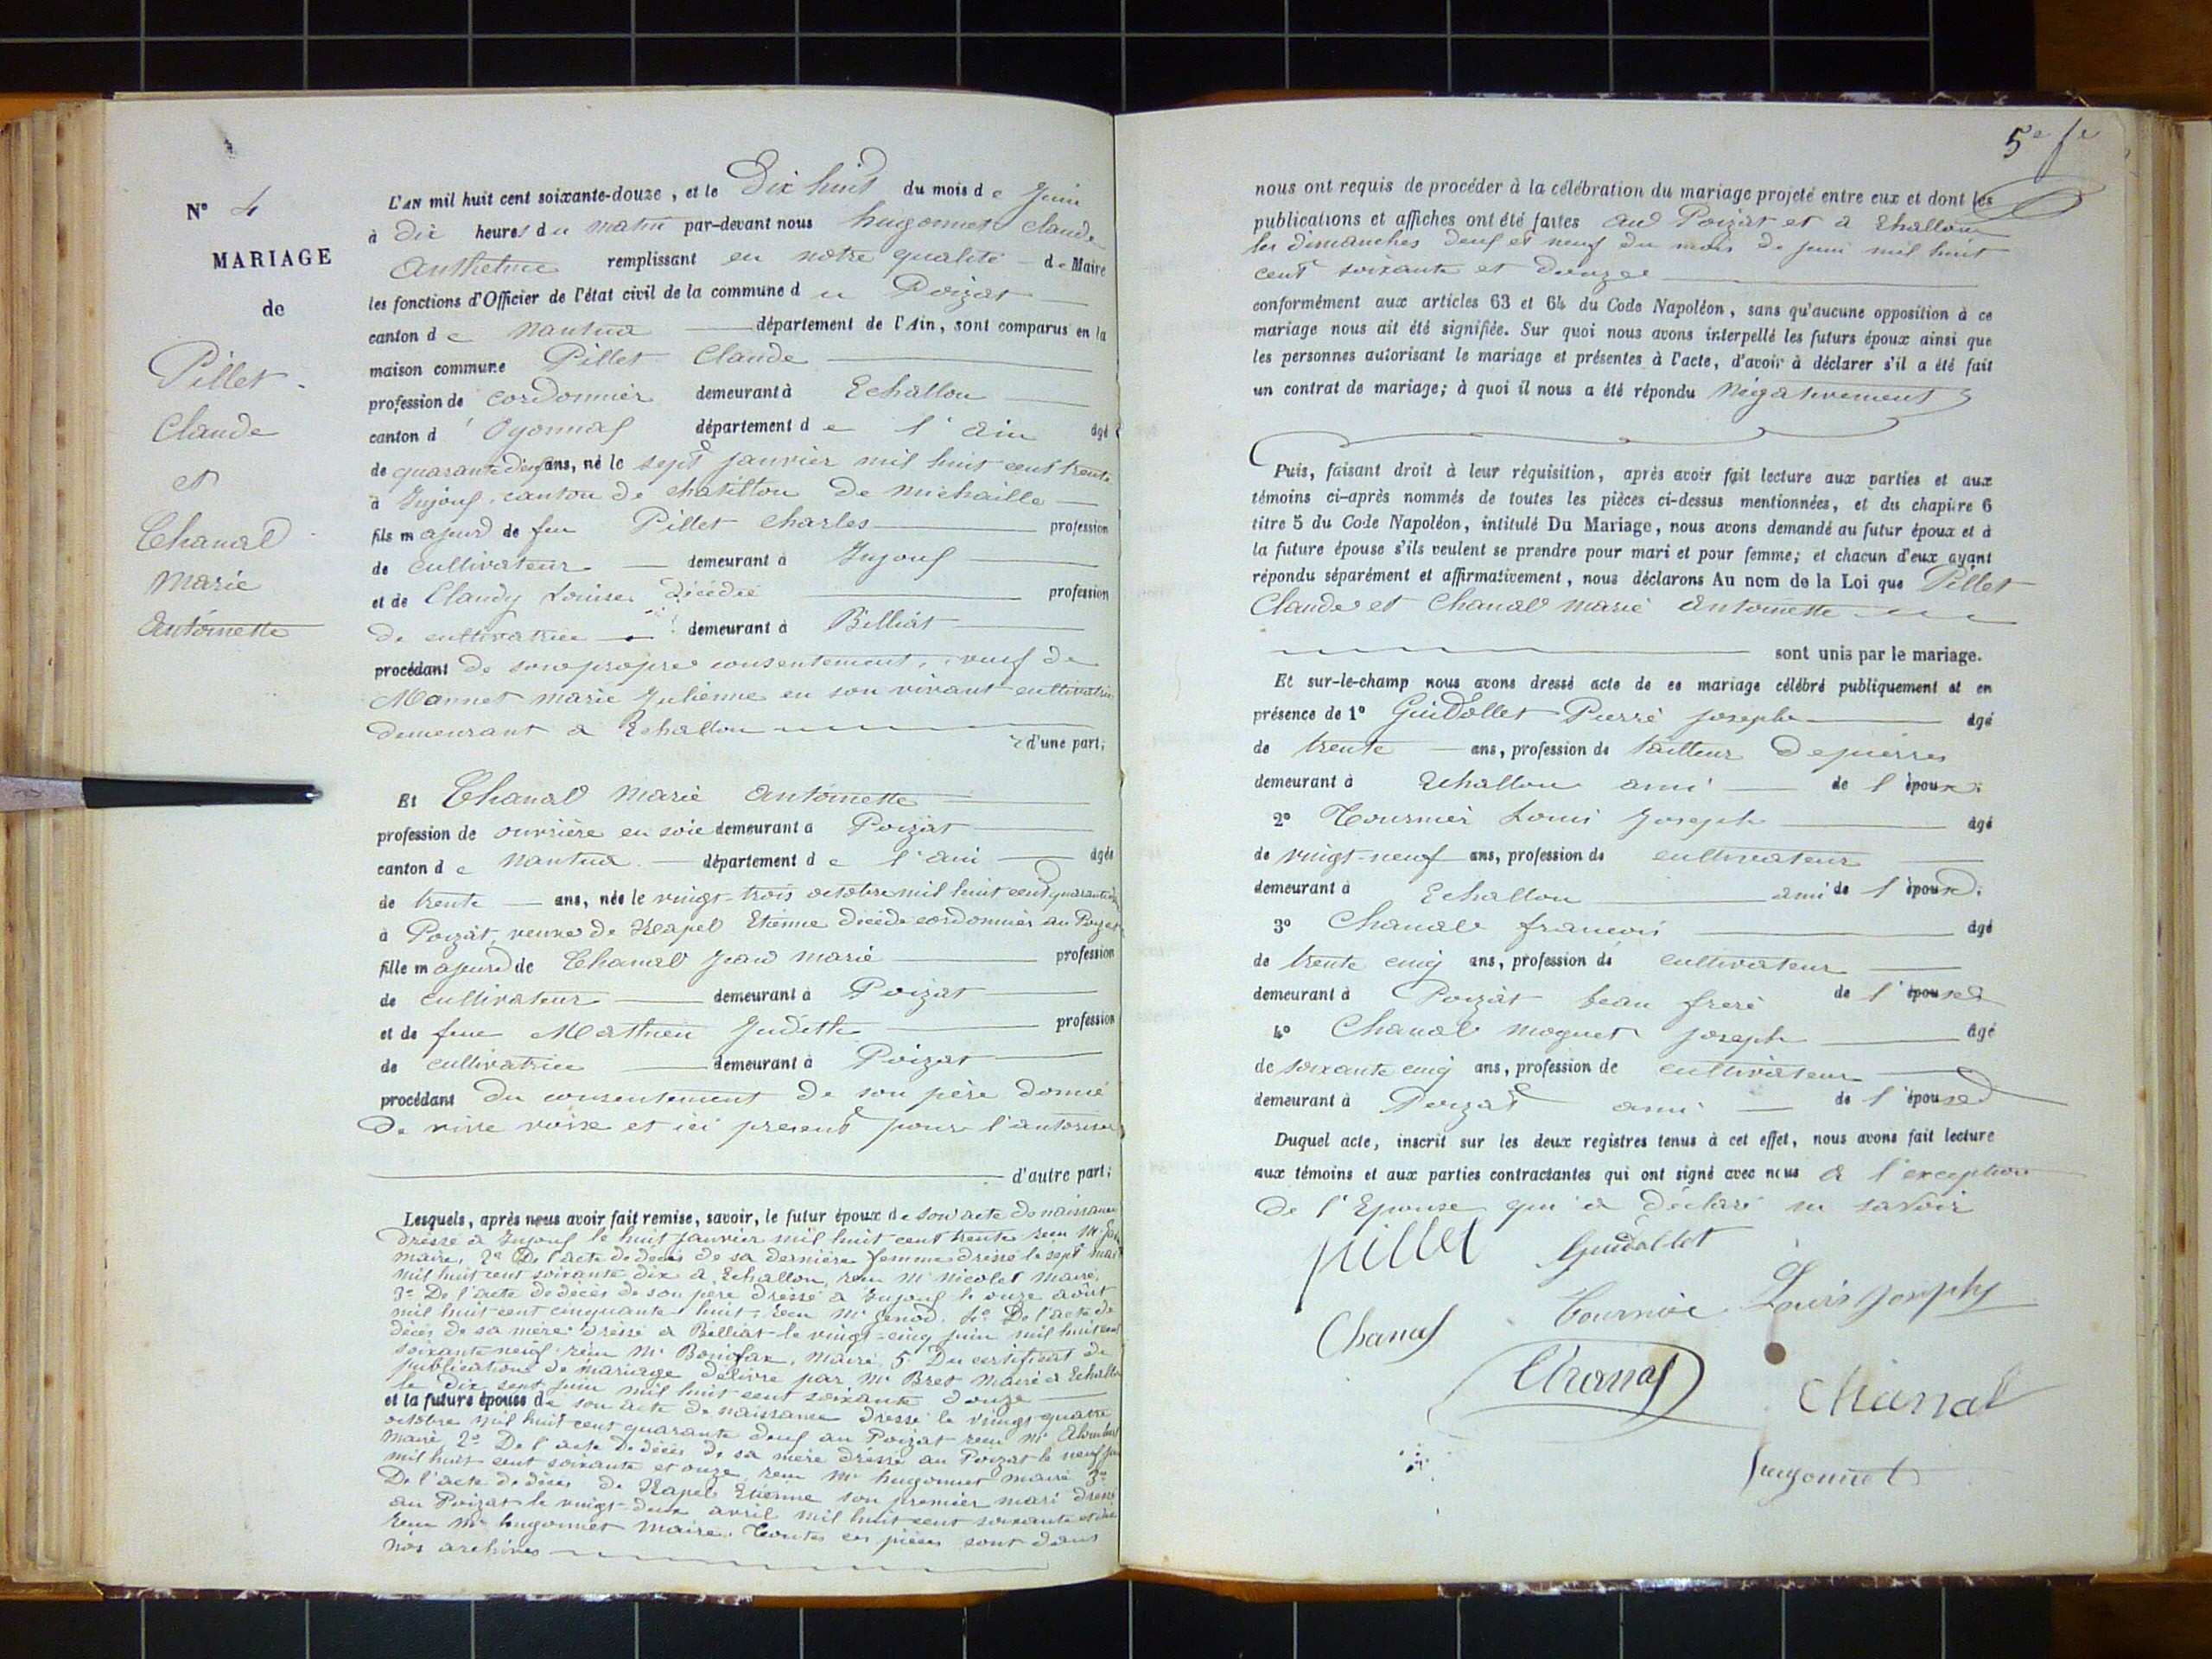 N° 4
MARIAGE
de
Pillet
Claude
et
Chanal
Marie
Antoinette
L'AN mil huit cent soixante-douze, et le Dix huit du mois de Juin
à Dix heures du matin par-devant nous hugonnet Claude
Anthelme remplissant en notre qualité de Maire
les fonctions d'Officier de l'état civil de la commune du Poizat
canton de Nantua département de l'Ain, sont comparus en la
maison commune Pillet Claude
profession de cordonnier demeurant à Echallon
canton d'Oyonnax département de l'ain âgé
de quarante deux ans, né le sept janvier mil huit cent trente
à Injoux, canton de chatillon de michaille
fils majeur de feu Pillet Charles profession
de cultivateur demeurant à Injoux
et de Claudy Louise Décédée profession
de cultivatrice demeurant à Billiat
procédant de son propre consentement, veuf de
Monnet marie Julienne en son vivant cultivatrice
demeurant à Echallon
d'une part;
Et Chanal Marie Antoinette
profession de ouvrière en soie demeurant a Poizat
canton de Nantua département de l'ain âgée
de trente ans, née le vingt-trois octobre mil huit cent quarante
à Poizat, veuve de Etienne décédé cordonnier au Poizat
fille majeure de Chanal Jean Marie profession
de cultivateur demeurant à Poizat
et de feue Mathieu Judith profession
de cultivatrice demeurant à Poizat
procédant du consentement de son père donné
de vive voix et ici présent pour l'autoriser
d'autre part;
Lesquels, après nous avoir fait remise, savoir, le futur époux de son acte de naissance
dressé à Injoux le huit janvier mil huit cent trente reçu Mr
maire, 2° De l'acte de décès de sa dernière femme dressé le sept mai
mil huit cent soixante dix à Echallon, reçu Mr Nicolet Maire,
3° De l'acte de décès de son père dressé à Injoux le onze août
mil huit cent cinquante huit, reçu Mr Genod. 4° De l'acte de
décès de sa mère dressé à Billiat le vingt-cinq juin mil huit cent
soixante neuf reçu Mr Bonifax, Maire, 5° Du certificat de
publications de mariage délivré par Mr Bret Maire à Echallon
le dix sept juin mil huit cent soixante douze
et la future épouse de son acte de naissance dressé le vingt quatre
octobre mil huit cent quarante deux au Poizat reçu Mr
maire 2° De l'acte de décès de sa mère dressé au Poizat le neuf
mil huit cent soixante et onze, reçu Mr hugonnet maire 3°
De l'acte de décès de Etienne son premier mari dressé
au Poizat le vingt-deux avril mil huit cent soixante et dix
reçu Mr hugonnet Maire. Toutes ces pièces sont dans
nos archives
5e fe
nous ont requis de procéder à la célébration du mariage projeté entre eux et dont les
publications et affiches ont été faites au Poizat et à Echallon
les dimanches deux et neuf du mois de juin mil huit
cent soixante et douze
conformément aux articles 63 et 64 du Code Napoléon, sans qu'aucune opposition à ce
mariage nous ait été signifiée. Sur quoi nous avons interpellé les futurs époux ainsi que
les personnes autorisant le mariage et présentes à l'acte, d'avoir à déclarer s'il a été fait
un contrat de mariage; à quoi il nous a été répondu Négativement
Puis, faisant droit à leur réquisition, après avoir fait lecture aux parties et aux
témoins ci-après nommés de toutes les pièces ci-dessus mentionnées, et du chapitre 6
titre 5 du Code Napoléon, intitulé Du Mariage, nous avons demandé au futur époux et à
la future épouse s'ils veulent se prendre pour mari et pour femme; et chacun d'eux ayant
répondu séparément et affirmativement, nous déclarons Au nom de la Loi que Pillet
Claude et Chanal Marie Antoinette
sont unis par le mariage.
Et sur-le-champ nous avons dressé acte de ce mariage célébré publiquement et en
présence de 1° Guidollet Pierre Joseph âgé
de trente ans, profession de tailleur de pierres
demeurant à Echallon ami de l'époux;
2° Tournier Louis Joseph âgé
de vingt-neuf ans, profession de cultivateur
demeurant à Echallon ami de l'époux;
3° Chanal francois âgé
de trente cinq ans, profession de cultivateur
demeurant à Poizat beau frere de l'épouse
4° Chanal moguet Joseph âgé
de soixante cinq ans, profession de cultivateur
demeurant à Poizat ami de l'épouse
Duquel acte, inscrit sur les deux registres tenus à cet effet, nous avons fait lecture
aux témoins et aux parties contractantes qui ont signé avec nous à l'exception
De l'Epouse qui a déclaré ne savoir
pillet Guidollet
Chanal Tournier Louis Joseph
Chanal Chanal
hugonnet